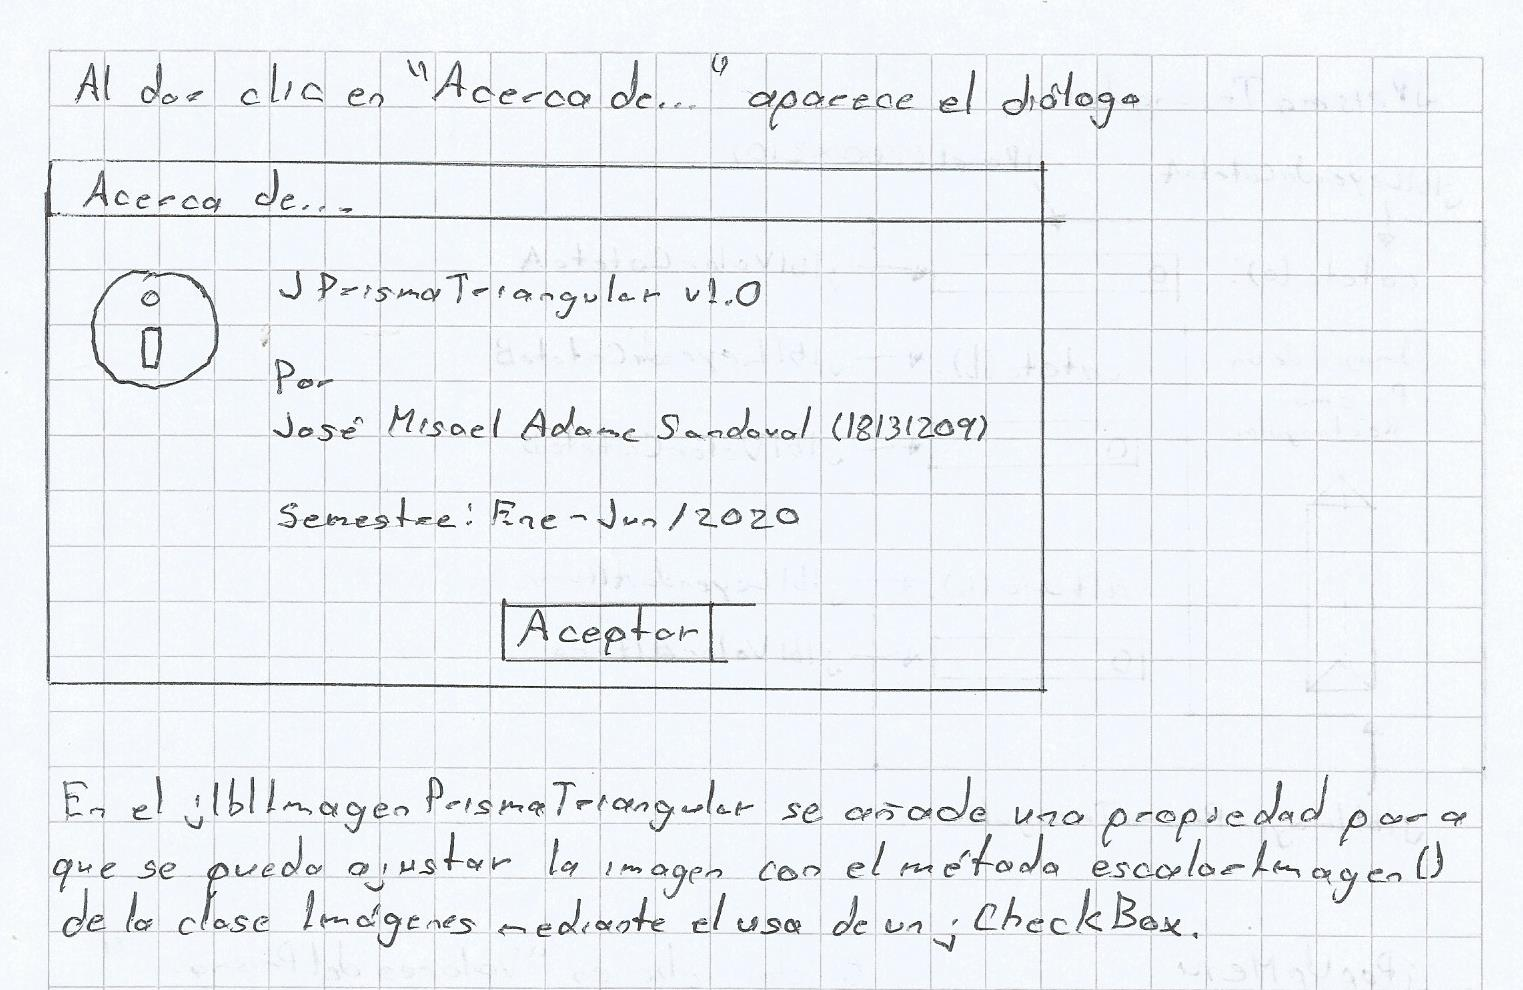 Al dar clic en "Acerca de..." aparece el diálogo
Acerca de...
JPrismaTriangular v1.0
Por
José Misael Adame Sandoval (18131209)
Semestre: Ene-Jun/2020
Aceptar
En el jlblImagenPrismaTriangular se añade una propiedad para
que se pueda ajustar la imagen con el método escalarImagen()
de la clase Imágenes mediante el uso de un jCheckBox.